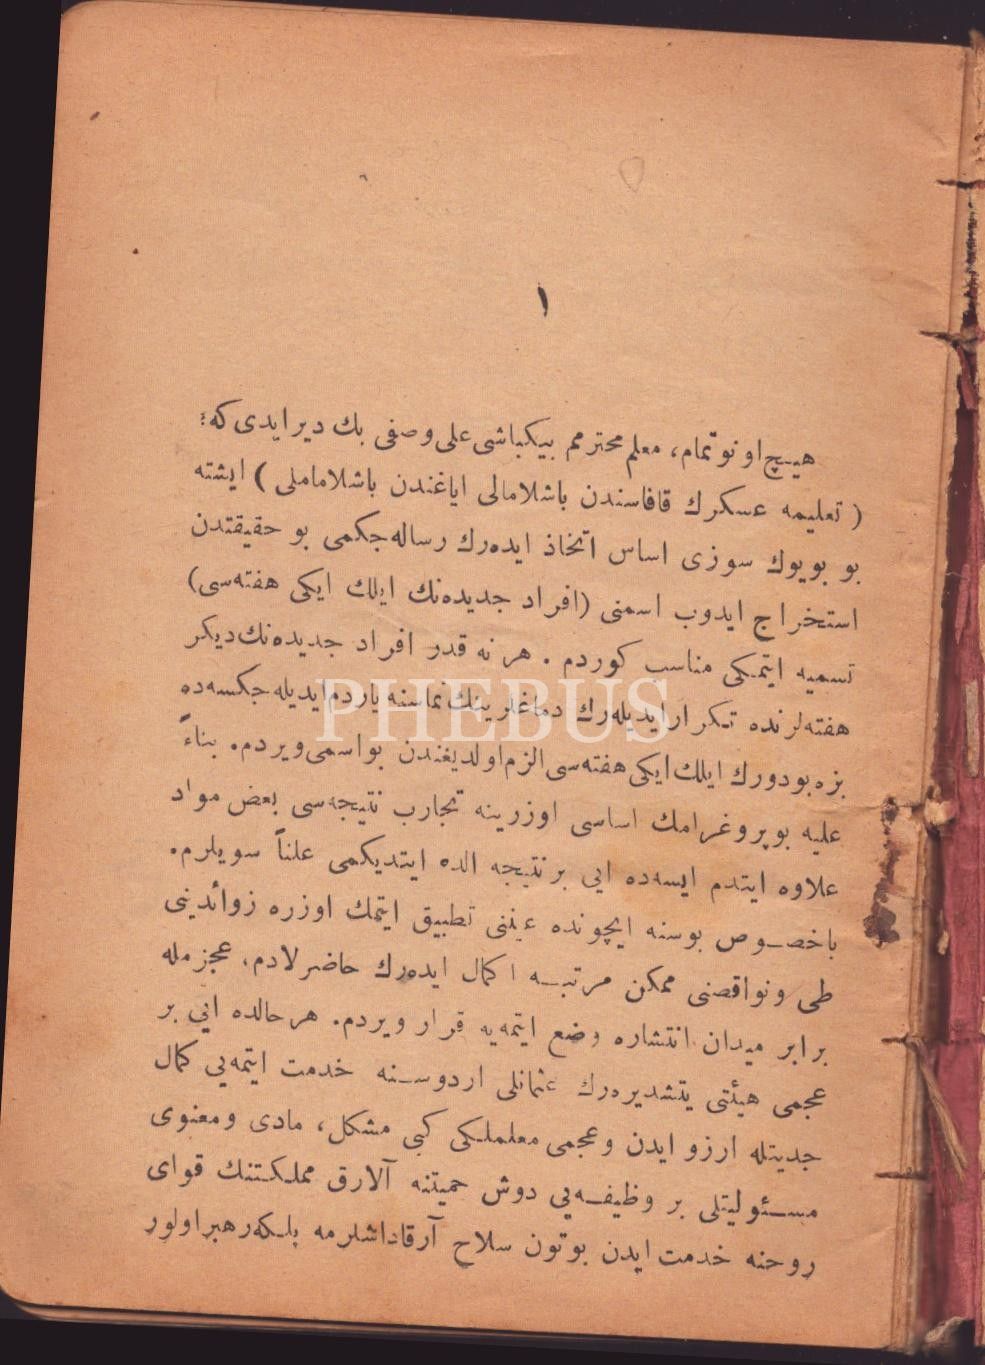 ١
هیچ اونوتمام، معلم محترمم بیکباشی علی وصفی بك دیر ایدی که:
( تعلیمه عسکرك قافاسندن باشلامالی ایاغندن باشلاماملی ) ایشته
بو بویوك سوزی اساس اتخاذ ایده‌رك رساله‌جکمی بو حقیقتدن
استخراج ایدوب اسمنی (افراد جدیده‌نك ایلك ایکی هفته‌سی)
تسمیه ایتمکی مناسب کوردم . هر نه قدر افراد جدیده‌نك دیکر
هفته‌لرنده تکرار ایدیله‌رك دماغلرینك نماسنه یاردم ایدیله‌جکسه‌ده
بزه بودورك ایلك ایکی هفته‌سی الزم اولدیغندن بواسمی ویردم. بناءً
علیه بوپروغرامك اساسی اوزرینه تجارب نتیجه‌سی بعض مواد
علاوه ایتدم ایسه‌ده ایی بر نتیجه الده ایتدیکمی علناً سویلرم.
باخصوص بوسنه ایچونده عیننی تطبیق ایتمك اوزره زوائدینی
طی ونواقصنی ممکن مرتبه اکمال ایده‌رك حاضرلادم، عجزمله
برابر میدان انتشاره وضع ایتمه‌یه قرار ویردم. هر حالده ایی بر
عجمی هیئتی یتشدیره‌رك عثمانلی اردوسنه خدمت ایتمه‌یی کمال
جدیتله ارزو ایدن وعجمی معلملکی کبی مشکل، مادی ومعنوی
مسئولیتلی بر وظیفه‌یی دوش حمیتنه آلارق مملکتنك قوای
روحنه خدمت ایدن بوتون سلاح آرقاداشلرمه بلکه رهبر اولور
PHEBUS